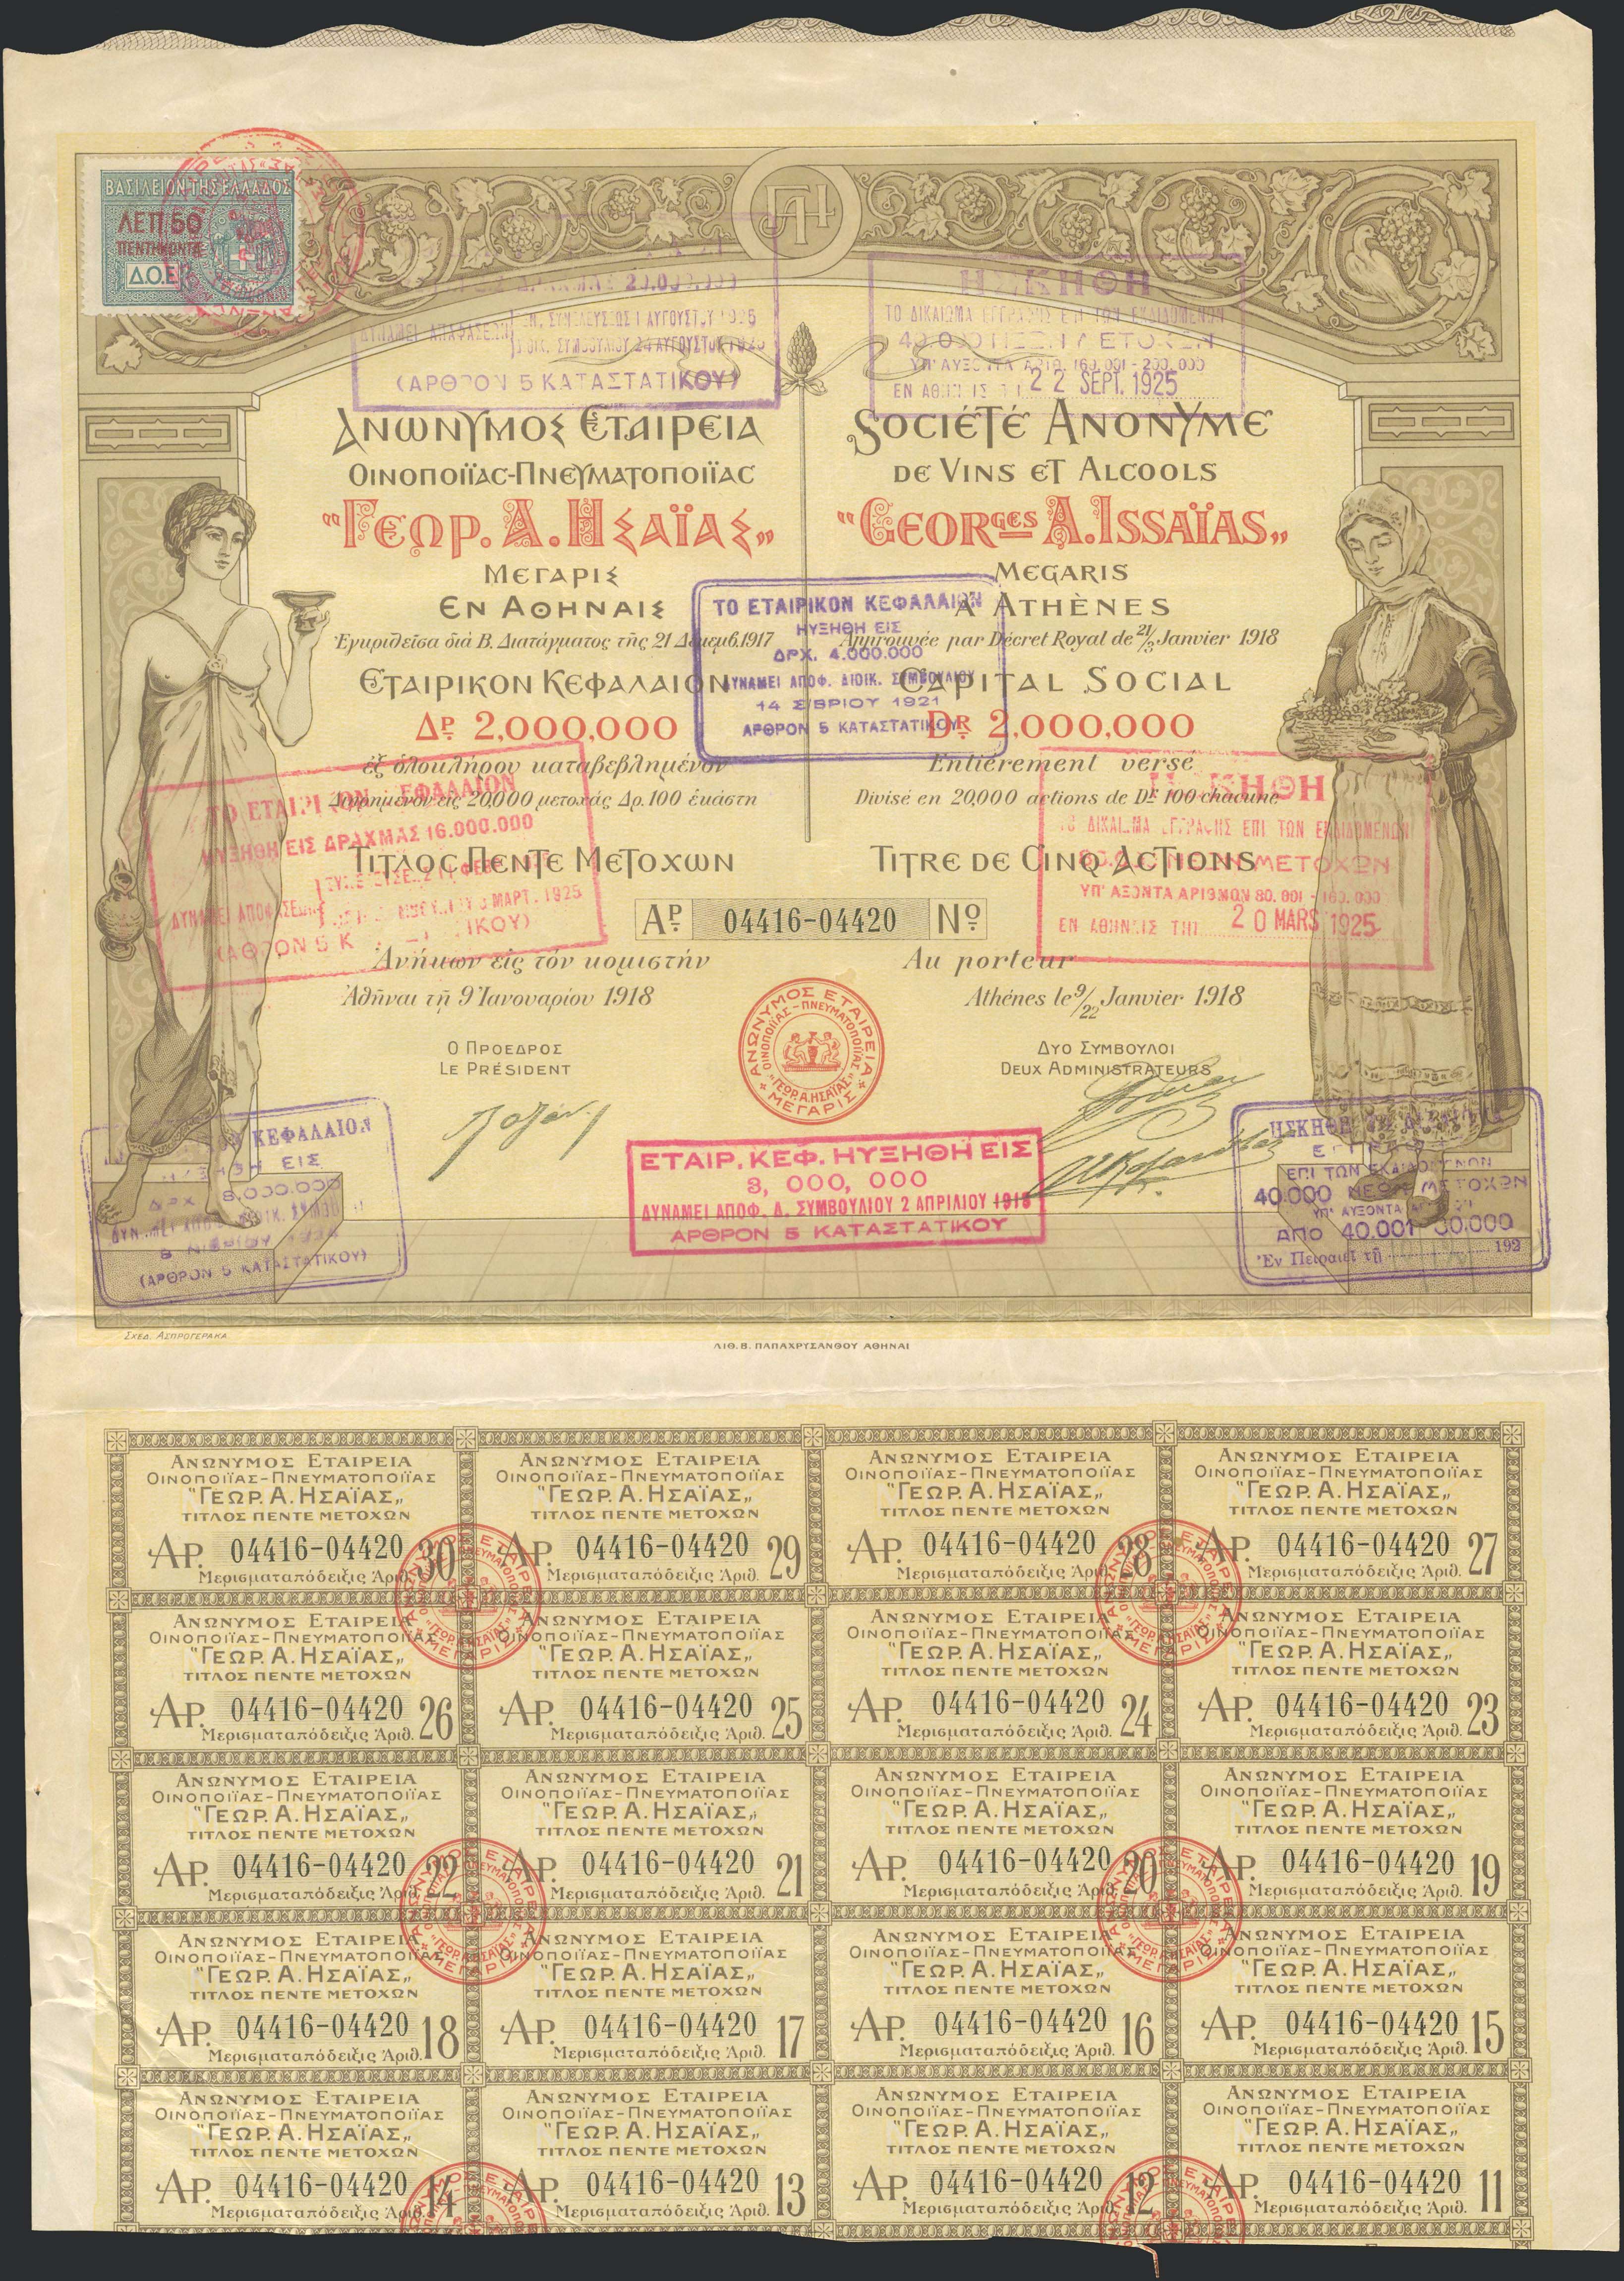 ΒΑΣΙΛΕΙΟΝ ΤΗΣ ΕΛΛΑΔΟΣ
ΛΕΠ. 50
ΠΕΝΤΗΚΟΝΤΑ
Δ.Ο.Ε.
ΓΑΗ
20.000.000
ΔΥΝΑΜΕΙ ΑΠΟΦΑΣΕΩΝ
ΓΕΝ. ΣΥΝΕΛΕΥΣΕΩΣ 1 ΑΥΓΟΥΣΤΟΥ 1925
ΔΙΟΙΚ. ΣΥΜΒΟΥΛΙΟΥ 24 ΑΥΓΟΥΣΤΟΥ 1925
(ΑΡΘΡΟΝ 5 ΚΑΤΑΣΤΑΤΙΚΟΥ)
ΗΣΚΗΘΗ
ΤΟ ΔΙΚΑΙΩΜΑ ΕΓΓΡΑΦΗΣ ΕΠΙ ΤΩΝ ΕΚΔΙΔΟΜΕΝΩΝ
40.000 ΝΕΩΝ ΜΕΤΟΧΩΝ
ΥΠ' ΑΥΞΟΝΤΑ ΑΡΙΘ. 160.001 - 200.000
ΕΝ ΑΘΗΝΑΙΣ ΤΗ 22 SEPT. 1925
ΑΝΩΝΥΜΟΣ ΕΤΑΙΡΕΙΑ
ΟΙΝΟΠΟΙΪΑΣ-ΠΝΕΥΜΑΤΟΠΟΙΪΑΣ
"ΓΕΩΡ. Α. ΗΣΑΪΑΣ„
ΜΕΓΑΡΙΣ
ΕΝ ΑΘΗΝΑΙΣ
Ἐγκριθεῖσα διὰ Β. Διατάγματος τῆς 21 Δεκεμβ. 1917
ΕΤΑΙΡΙΚΟΝ ΚΕΦΑΛΑΙΟΝ
ΔΡ. 2,000,000
ἐξ ὁλοκλήρου καταβεβλημένον
Διῃρημένον εἰς 20000 μετοχάς Δρ. 100 ἑκάστη
ΤΙΤΛΟΣ ΠΕΝΤΕ ΜΕΤΟΧΩΝ
SOCIÉTÉ ANONYME
DE VINS ET ALCOOLS
"GEORGES A. ISSAÏAS„
MEGARIS
A ATHÈNES
Approuvée par Décret Royal de 21/3 Janvier 1918
CAPITAL SOCIAL
DR 2,000,000
Entièrement versé
Divisé en 20,000 actions de DR 100 chacune
TITRE DE CINQ ACTIONS
ΤΟ ΕΤΑΙΡΙΚΟΝ ΚΕΦΑΛΑΙΟΝ
ΗΥΞΗΘΗ ΕΙΣ
ΔΡΧ. 4.000.000
ΔΥΝΑΜΕΙ ΑΠΟΦ. ΔΙΟΙΚ. ΣΥΜΒΟΥΛΙΟΥ
14 Σ/ΒΡΙΟΥ 1921
ΑΡΘΡΟΝ 5 ΚΑΤΑΣΤΑΤΙΚΟΥ
ΤΟ ΕΤΑΙΡΙΚΟΝ ΚΕΦΑΛΑΙΟΝ
ΗΥΞΗΘΗ ΕΙΣ ΔΡΑΧΜΑΣ 16.000.000
ΔΥΝΑΜΕΙ ΑΠΟΦΑΣΕΩΝ
ΜΑΡΤ. 1925
ΗΣΚΗΘΗ
ΤΟ ΔΙΚΑΙΩΜΑ ΕΓΓΡΑΦΗΣ ΕΠΙ ΤΩΝ ΕΚΔΙΔΟΜΕΝΩΝ
80.000 ΝΕΩΝ ΜΕΤΟΧΩΝ
ΥΠ' ΑΞΟΝΤΑ ΑΡΙΘΜΟΝ 80.001 - 160.000
ΕΝ ΑΘΗΝΑΙΣ ΤΗΙ 20 MARS 1925
ΑΡ. 04416-04420 Nº
Ἀνήκων εἰς τόν κομιστήν
Au porteur
Ἀθῆναι τῇ 9 Ἰανουαρίου 1918
Athénes le 9/22 Janvier 1918
Ο ΠΡΟΕΔΡΟΣ
LE PRÉSIDENT
ΔΥΟ ΣΥΜΒΟΥΛΟΙ
DEUX ADMINISTRATEURS
ΑΝΩΝΥΜΟΣ ΕΤΑΙΡΕΙΑ
ΟΙΝΟΠΟΙΪΑΣ-ΠΝΕΥΜΑΤΟΠΟΙΪΑΣ
"ΓΕΩΡ. Α. ΗΣΑΪΑΣ"
ΜΕΓΑΡΙΣ
ΕΤΑΙΡ. ΚΕΦ. ΗΥΞΗΘΗ ΕΙΣ
3,000,000
ΔΥΝΑΜΕΙ ΑΠΟΦ. Δ. ΣΥΜΒΟΥΛΙΟΥ 2 ΑΠΡΙΛΙΟΥ 1918
ΑΡΘΡΟΝ 5 ΚΑΤΑΣΤΑΤΙΚΟΥ
ΚΕΦΑΛΑΙΟΝ
ΗΥΞΗΘΗ ΕΙΣ
ΔΡΧ 8,000.000
(ΑΡΘΡΟΝ 5 ΚΑΤΑΣΤΑΤΙΚΟΥ)
ΗΣΚΗΘΗ
ΕΠΙ ΤΩΝ ΕΚΔΙΔΟΜΕΝΩΝ
40.000 ΝΕΩΝ ΜΕΤΟΧΩΝ
ΥΠ' ΑΥΞΟΝΤΑ
ΑΠΟ 40.001
Ἐν Πειραιεῖ τῇ 192
ΣΧΕΔ. ΑΣΠΡΟΓΕΡΑΚΑ
ΛΙΘ. Β. ΠΑΠΑΧΡΥΣΑΝΘΟΥ ΑΘΗΝΑΙ
ΑΝΩΝΥΜΟΣ ΕΤΑΙΡΕΙΑ
ΟΙΝΟΠΟΙΪΑΣ-ΠΝΕΥΜΑΤΟΠΟΙΪΑΣ
"ΓΕΩΡ. Α. ΗΣΑΪΑΣ„
ΤΙΤΛΟΣ ΠΕΝΤΕ ΜΕΤΟΧΩΝ
ΑΡ. 04416-04420
Μερισματαπόδειξις Ἀριθ. 30
ΑΝΩΝΥΜΟΣ ΕΤΑΙΡΕΙΑ
ΟΙΝΟΠΟΙΪΑΣ-ΠΝΕΥΜΑΤΟΠΟΙΪΑΣ
"ΓΕΩΡ. Α. ΗΣΑΪΑΣ„
ΤΙΤΛΟΣ ΠΕΝΤΕ ΜΕΤΟΧΩΝ
ΑΡ. 04416-04420
Μερισματαπόδειξις Ἀριθ. 29
ΑΝΩΝΥΜΟΣ ΕΤΑΙΡΕΙΑ
ΟΙΝΟΠΟΙΪΑΣ-ΠΝΕΥΜΑΤΟΠΟΙΪΑΣ
"ΓΕΩΡ. Α. ΗΣΑΪΑΣ„
ΤΙΤΛΟΣ ΠΕΝΤΕ ΜΕΤΟΧΩΝ
ΑΡ. 04416-04420
Μερισματαπόδειξις Ἀριθ. 28
ΑΝΩΝΥΜΟΣ ΕΤΑΙΡΕΙΑ
ΟΙΝΟΠΟΙΪΑΣ-ΠΝΕΥΜΑΤΟΠΟΙΪΑΣ
"ΓΕΩΡ. Α. ΗΣΑΪΑΣ„
ΤΙΤΛΟΣ ΠΕΝΤΕ ΜΕΤΟΧΩΝ
ΑΡ. 04416-04420
Μερισματαπόδειξις Ἀριθ. 27
ΑΝΩΝΥΜΟΣ ΕΤΑΙΡΕΙΑ
ΟΙΝΟΠΟΙΪΑΣ-ΠΝΕΥΜΑΤΟΠΟΙΪΑΣ
"ΓΕΩΡ. Α. ΗΣΑΪΑΣ„
ΤΙΤΛΟΣ ΠΕΝΤΕ ΜΕΤΟΧΩΝ
ΑΡ. 04416-04420
Μερισματαπόδειξις Ἀριθ. 26
ΑΝΩΝΥΜΟΣ ΕΤΑΙΡΕΙΑ
ΟΙΝΟΠΟΙΪΑΣ-ΠΝΕΥΜΑΤΟΠΟΙΪΑΣ
"ΓΕΩΡ. Α. ΗΣΑΪΑΣ„
ΤΙΤΛΟΣ ΠΕΝΤΕ ΜΕΤΟΧΩΝ
ΑΡ. 04416-04420
Μερισματαπόδειξις Ἀριθ. 25
ΑΝΩΝΥΜΟΣ ΕΤΑΙΡΕΙΑ
ΟΙΝΟΠΟΙΪΑΣ-ΠΝΕΥΜΑΤΟΠΟΙΪΑΣ
"ΓΕΩΡ. Α. ΗΣΑΪΑΣ„
ΤΙΤΛΟΣ ΠΕΝΤΕ ΜΕΤΟΧΩΝ
ΑΡ. 04416-04420
Μερισματαπόδειξις Ἀριθ. 24
ΑΝΩΝΥΜΟΣ ΕΤΑΙΡΕΙΑ
ΟΙΝΟΠΟΙΪΑΣ-ΠΝΕΥΜΑΤΟΠΟΙΪΑΣ
"ΓΕΩΡ. Α. ΗΣΑΪΑΣ„
ΤΙΤΛΟΣ ΠΕΝΤΕ ΜΕΤΟΧΩΝ
ΑΡ. 04416-04420
Μερισματαπόδειξις Ἀριθ. 23
ΑΝΩΝΥΜΟΣ ΕΤΑΙΡΕΙΑ
ΟΙΝΟΠΟΙΪΑΣ-ΠΝΕΥΜΑΤΟΠΟΙΪΑΣ
"ΓΕΩΡ. Α. ΗΣΑΪΑΣ„
ΤΙΤΛΟΣ ΠΕΝΤΕ ΜΕΤΟΧΩΝ
ΑΡ. 04416-04420
Μερισματαπόδειξις Ἀριθ. 22
ΑΝΩΝΥΜΟΣ ΕΤΑΙΡΕΙΑ
ΟΙΝΟΠΟΙΪΑΣ-ΠΝΕΥΜΑΤΟΠΟΙΪΑΣ
"ΓΕΩΡ. Α. ΗΣΑΪΑΣ„
ΤΙΤΛΟΣ ΠΕΝΤΕ ΜΕΤΟΧΩΝ
ΑΡ. 04416-04420
Μερισματαπόδειξις Ἀριθ. 21
ΑΝΩΝΥΜΟΣ ΕΤΑΙΡΕΙΑ
ΟΙΝΟΠΟΙΪΑΣ-ΠΝΕΥΜΑΤΟΠΟΙΪΑΣ
"ΓΕΩΡ. Α. ΗΣΑΪΑΣ„
ΤΙΤΛΟΣ ΠΕΝΤΕ ΜΕΤΟΧΩΝ
ΑΡ. 04416-04420
Μερισματαπόδειξις Ἀριθ. 20
ΑΝΩΝΥΜΟΣ ΕΤΑΙΡΕΙΑ
ΟΙΝΟΠΟΙΪΑΣ-ΠΝΕΥΜΑΤΟΠΟΙΪΑΣ
"ΓΕΩΡ. Α. ΗΣΑΪΑΣ„
ΤΙΤΛΟΣ ΠΕΝΤΕ ΜΕΤΟΧΩΝ
ΑΡ. 04416-04420
Μερισματαπόδειξις Ἀριθ. 19
ΑΝΩΝΥΜΟΣ ΕΤΑΙΡΕΙΑ
ΟΙΝΟΠΟΙΪΑΣ-ΠΝΕΥΜΑΤΟΠΟΙΪΑΣ
"ΓΕΩΡ. Α. ΗΣΑΪΑΣ„
ΤΙΤΛΟΣ ΠΕΝΤΕ ΜΕΤΟΧΩΝ
ΑΡ. 04416-04420
Μερισματαπόδειξις Ἀριθ. 18
ΑΝΩΝΥΜΟΣ ΕΤΑΙΡΕΙΑ
ΟΙΝΟΠΟΙΪΑΣ-ΠΝΕΥΜΑΤΟΠΟΙΪΑΣ
"ΓΕΩΡ. Α. ΗΣΑΪΑΣ„
ΤΙΤΛΟΣ ΠΕΝΤΕ ΜΕΤΟΧΩΝ
ΑΡ. 04416-04420
Μερισματαπόδειξις Ἀριθ. 17
ΑΝΩΝΥΜΟΣ ΕΤΑΙΡΕΙΑ
ΟΙΝΟΠΟΙΪΑΣ-ΠΝΕΥΜΑΤΟΠΟΙΪΑΣ
"ΓΕΩΡ. Α. ΗΣΑΪΑΣ„
ΤΙΤΛΟΣ ΠΕΝΤΕ ΜΕΤΟΧΩΝ
ΑΡ. 04416-04420
Μερισματαπόδειξις Ἀριθ. 16
ΑΝΩΝΥΜΟΣ ΕΤΑΙΡΕΙΑ
ΟΙΝΟΠΟΙΪΑΣ-ΠΝΕΥΜΑΤΟΠΟΙΪΑΣ
"ΓΕΩΡ. Α. ΗΣΑΪΑΣ„
ΤΙΤΛΟΣ ΠΕΝΤΕ ΜΕΤΟΧΩΝ
ΑΡ. 04416-04420
Μερισματαπόδειξις Ἀριθ. 15
ΑΝΩΝΥΜΟΣ ΕΤΑΙΡΕΙΑ
ΟΙΝΟΠΟΙΪΑΣ-ΠΝΕΥΜΑΤΟΠΟΙΪΑΣ
"ΓΕΩΡ. Α. ΗΣΑΪΑΣ„
ΤΙΤΛΟΣ ΠΕΝΤΕ ΜΕΤΟΧΩΝ
ΑΡ. 04416-04420
Μερισματαπόδειξις Ἀριθ. 14
ΑΝΩΝΥΜΟΣ ΕΤΑΙΡΕΙΑ
ΟΙΝΟΠΟΙΪΑΣ-ΠΝΕΥΜΑΤΟΠΟΙΪΑΣ
"ΓΕΩΡ. Α. ΗΣΑΪΑΣ„
ΤΙΤΛΟΣ ΠΕΝΤΕ ΜΕΤΟΧΩΝ
ΑΡ. 04416-04420
Μερισματαπόδειξις Ἀριθ. 13
ΑΝΩΝΥΜΟΣ ΕΤΑΙΡΕΙΑ
ΟΙΝΟΠΟΙΪΑΣ-ΠΝΕΥΜΑΤΟΠΟΙΪΑΣ
"ΓΕΩΡ. Α. ΗΣΑΪΑΣ„
ΤΙΤΛΟΣ ΠΕΝΤΕ ΜΕΤΟΧΩΝ
ΑΡ. 04416-04420
Μερισματαπόδειξις Ἀριθ. 12
ΑΝΩΝΥΜΟΣ ΕΤΑΙΡΕΙΑ
ΟΙΝΟΠΟΙΪΑΣ-ΠΝΕΥΜΑΤΟΠΟΙΪΑΣ
"ΓΕΩΡ. Α. ΗΣΑΪΑΣ„
ΤΙΤΛΟΣ ΠΕΝΤΕ ΜΕΤΟΧΩΝ
ΑΡ. 04416-04420
Μερισματαπόδειξις Ἀριθ. 11